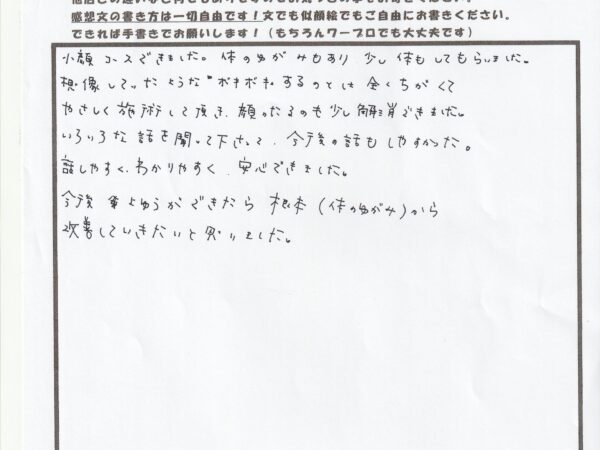 感想文の書き方は一切自由です！文でも似顔絵でもご自由にお書きください。
できれば手書きでお願いします！（もちろんワープロでも大丈夫です）
小顔コースできました。体のゆがみもあり少し体もしてもらいました。
想像していたような"ボキボキ"するのとは全くちがくて
やさしく施術して頂き、顔のたるみも少し解消できました。
いろいろな話を聞いて下さって、今後の話もしやすかった。
話しやすく、わかりやすく、安心できました。
今後 よゆうができたら 根本（体のゆがみ）から
改善していきたいと思いました。